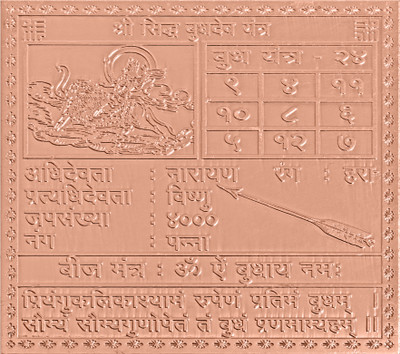 श्री सिद्ध बुधदेव यंत्र
बुध यंत्र - २४
९ ४ ११
१० ८ ६
५ १२ ७
अधिदेवता : नारायण रंग : हरा
प्रत्यधिदेवता : विष्णु
जपसंख्या : ४०००
नंग : पन्ना
बीज मंत्र : ॐ ऐं बुधाय नमः
प्रियंगुकलिकाश्यामं रुपेणं प्रतिमं बुधम् ।
सौम्यं सौम्यगुणोपेतं तं बुधं प्रणमाम्यहम् ॥